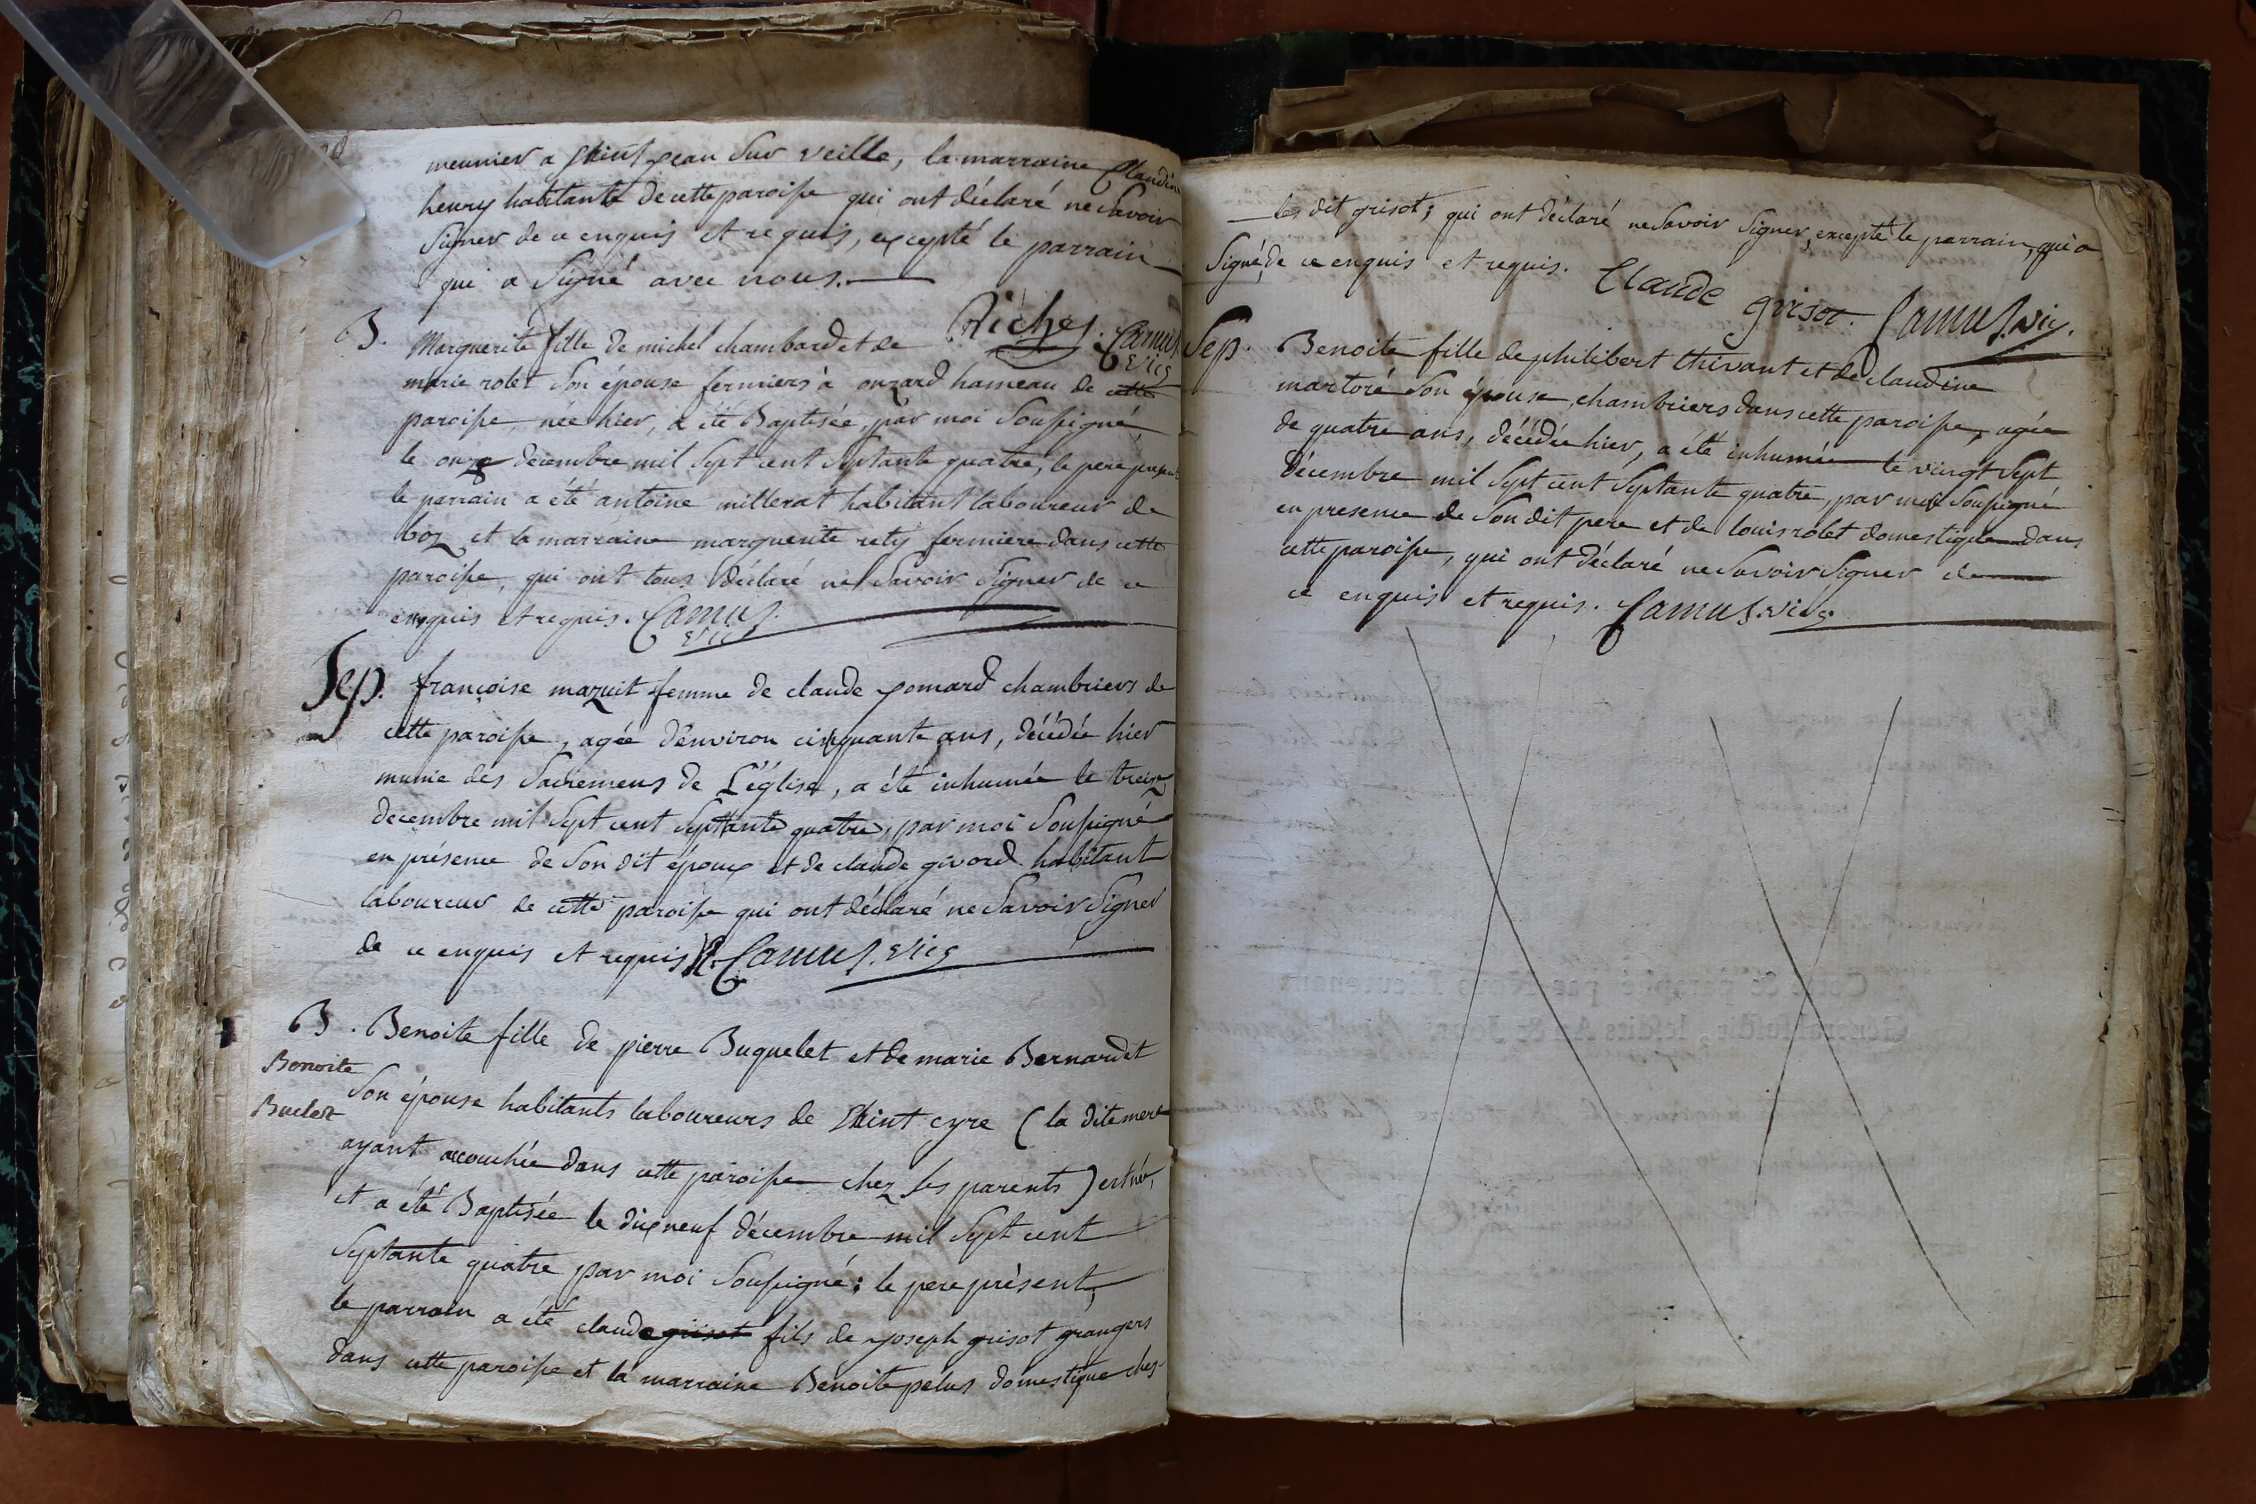 meunier a Saint jean sur veille, la marraine Claudine
henry habitante de cette paroisse qui ont déclaré ne savoir
signer de ce enquis et requis, excepté le parrain
qui a signé avec nous.
Riches. Camus
vic
B. Marguerite fille de michel chambard et de
marie rolet son épouse fermiers à onzard hameau de cette
paroisse, née hier, a été Baptisée, par moi soussigné,
le onze decembre mil sept cent septante quatre, le pere present
le parrain a été antoine millerat habitant laboureur de
boz et la marraine marguerite rety fermiere dans cette
paroisse, qui ont tous déclaré ne savoir signer de ce
enquis et requis. Camus.
vic
Sep. françoise mazuit femme de claude pomard chambriers de
cette paroisse, agée d'environ cinquante ans, décédée hier
munie des sacremens de L'église, a été inhumée le treize
decembre mil sept cent septante quatre, par moi soussigné
en présence de son dit époux et de claude givord habitant
laboureur de cette paroisse qui ont déclaré ne savoir signer
de ce enquis et requis. Camus. vic
B. Benoite fille de pierre Buguelet et de marie Bernardet
Benoite
son épouse habitants laboureurs de Saint cyre (la dite mere
Buclet
ayant accouchée dans cette paroisse chez ses parents) est née,
et a été Baptisée le dix neuf décembre mil sept cent
septante quatre par moi soussigné; le pere présent,
le parrain a été claude grisot fils de joseph grisot grangers
dans cette paroisse et la marraine Benoite pelus domestique chez
les dit grisot; qui ont déclaré ne savoir signer, excepté le parrain, qui a
signé, de ce enquis et requis.
Claude grisot. Camus. vic.
Sep. Benoite fille de philibert thivant et de claudine
martoré son épouse, chambriers dans cette paroisse, agée
de quatre ans, décédée hier, a été inhumée le vingt sept
décembre mil sept cent septante quatre, par moi soussigné
en presence de son dit pere et de louis rolet domestique dans
cette paroisse, qui ont déclaré ne savoir signer de
ce enquis et requis. Camus. vic.